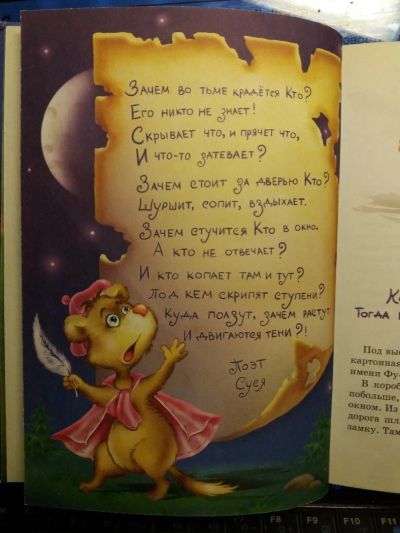 Зачем во тьме крадётся Кто?
Его никто не знает!
Скрывает что, и прячет что,
И что-то затевает?
Зачем стоит за дверью Кто?
Шуршит, сопит, вздыхает.
Зачем стучится Кто в окно,
А кто не отвечает?
И кто копает там и тут?
Под кем скрипят ступени?
Куда ползут, зачем растут
И двигаются тени?!
Поэт
Суся
Тогда
Под
картонная
имени
В короб
побольше,
окном. Из
дорога
замку. Там
F7
F8
F9
F10
F11